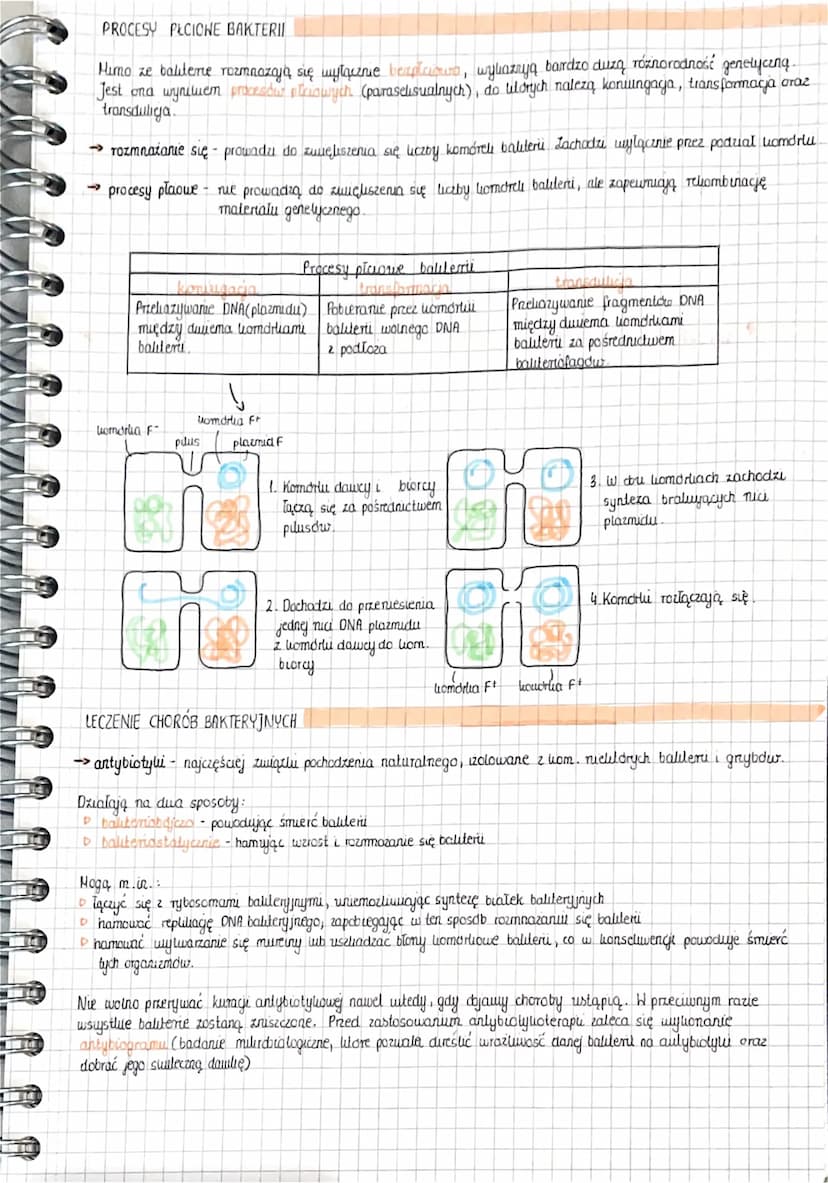 PROCESY PŁCIOWE BAKTERII
Mimo że bakterie rozmnażają się wyłącznie bezpłciowo, wykazują bardzo dużą różnorodność genetyczną.
Jest ona wynikiem procesów płciowych (paraseksualnych), do których należą koniungacja, transformacja oraz
transdukcja.
→ rozmnażanie się - prowadzi do zwiększenia się liczby komórek bakterii. Zachodzi wyłącznie przez podział komórki.
→ procesy płciowe - nie prowadzą do zwiększenia się liczby komórek bakterii, ale zapewniają rekombinację
materiału genetycznego.
Procesy płciowe bakterii
koniugacja transformacja transdukcja
Przekazywanie DNA (plazmidu)
między dwiema komórkami
bakterii.
Pobieranie przez komórki
bakterii wolnego DNA
z podłoża
Przekazywanie fragmentów DNA
między dwiema komórkami
bakterii za pośrednictwem
bakteriofagów.
komórka F-
pilus
komórka F+
plazmid F
1. Komórki dawcy i biorcy
łączą się za pośrednictwem
pilusów.
2. Dochodzi do przeniesienia
jednej nici DNA plazmidu
z komórki dawcy do kom.
biorcy
3. W obu komórkach zachodzi
synteza brakujących nici
plazmidu.
4. Komórki rozłączają się.
komórka F+ komórka F+
LECZENIE CHORÓB BAKTERYJNYCH
→ antybiotyki - najczęściej związki pochodzenia naturalnego, izolowane z kom. niektórych bakterii i grzybów.
Działają na dwa sposoby:
▷ bakteriobójczo - powodując śmierć bakterii
▷ bakteriostatycznie - hamując wzrost i rozmnożanie się bakterii
Mogą m.in.:
▷ łączyć się z rybosomami bakteryjnymi, uniemożliwiając syntezę białek bakteryjnych
▷ hamować replikację DNA bakteryjnego, zapobiegając w ten sposób rozmnażaniu się bakterii
▷ hamować wytwarzanie się mureiny lub uszkadzać błony komórkowe bakterii, co w konsekwencji powoduje śmierć
tych organizmów.
Nie wolno przerywać kuracji antybiotykowej nawet wtedy, gdy objawy choroby ustąpią. W przeciwnym razie
wszystkie bakterie zostaną zniszczone. Przed zastosowaniem antybiotykoterapii zaleca się wykonanie
antybiogramu (badanie mikrobiologiczne, które pozwala określić wrażliwość danej bakterii na antybiotyki oraz
dobrać jego skuteczną dawkę)